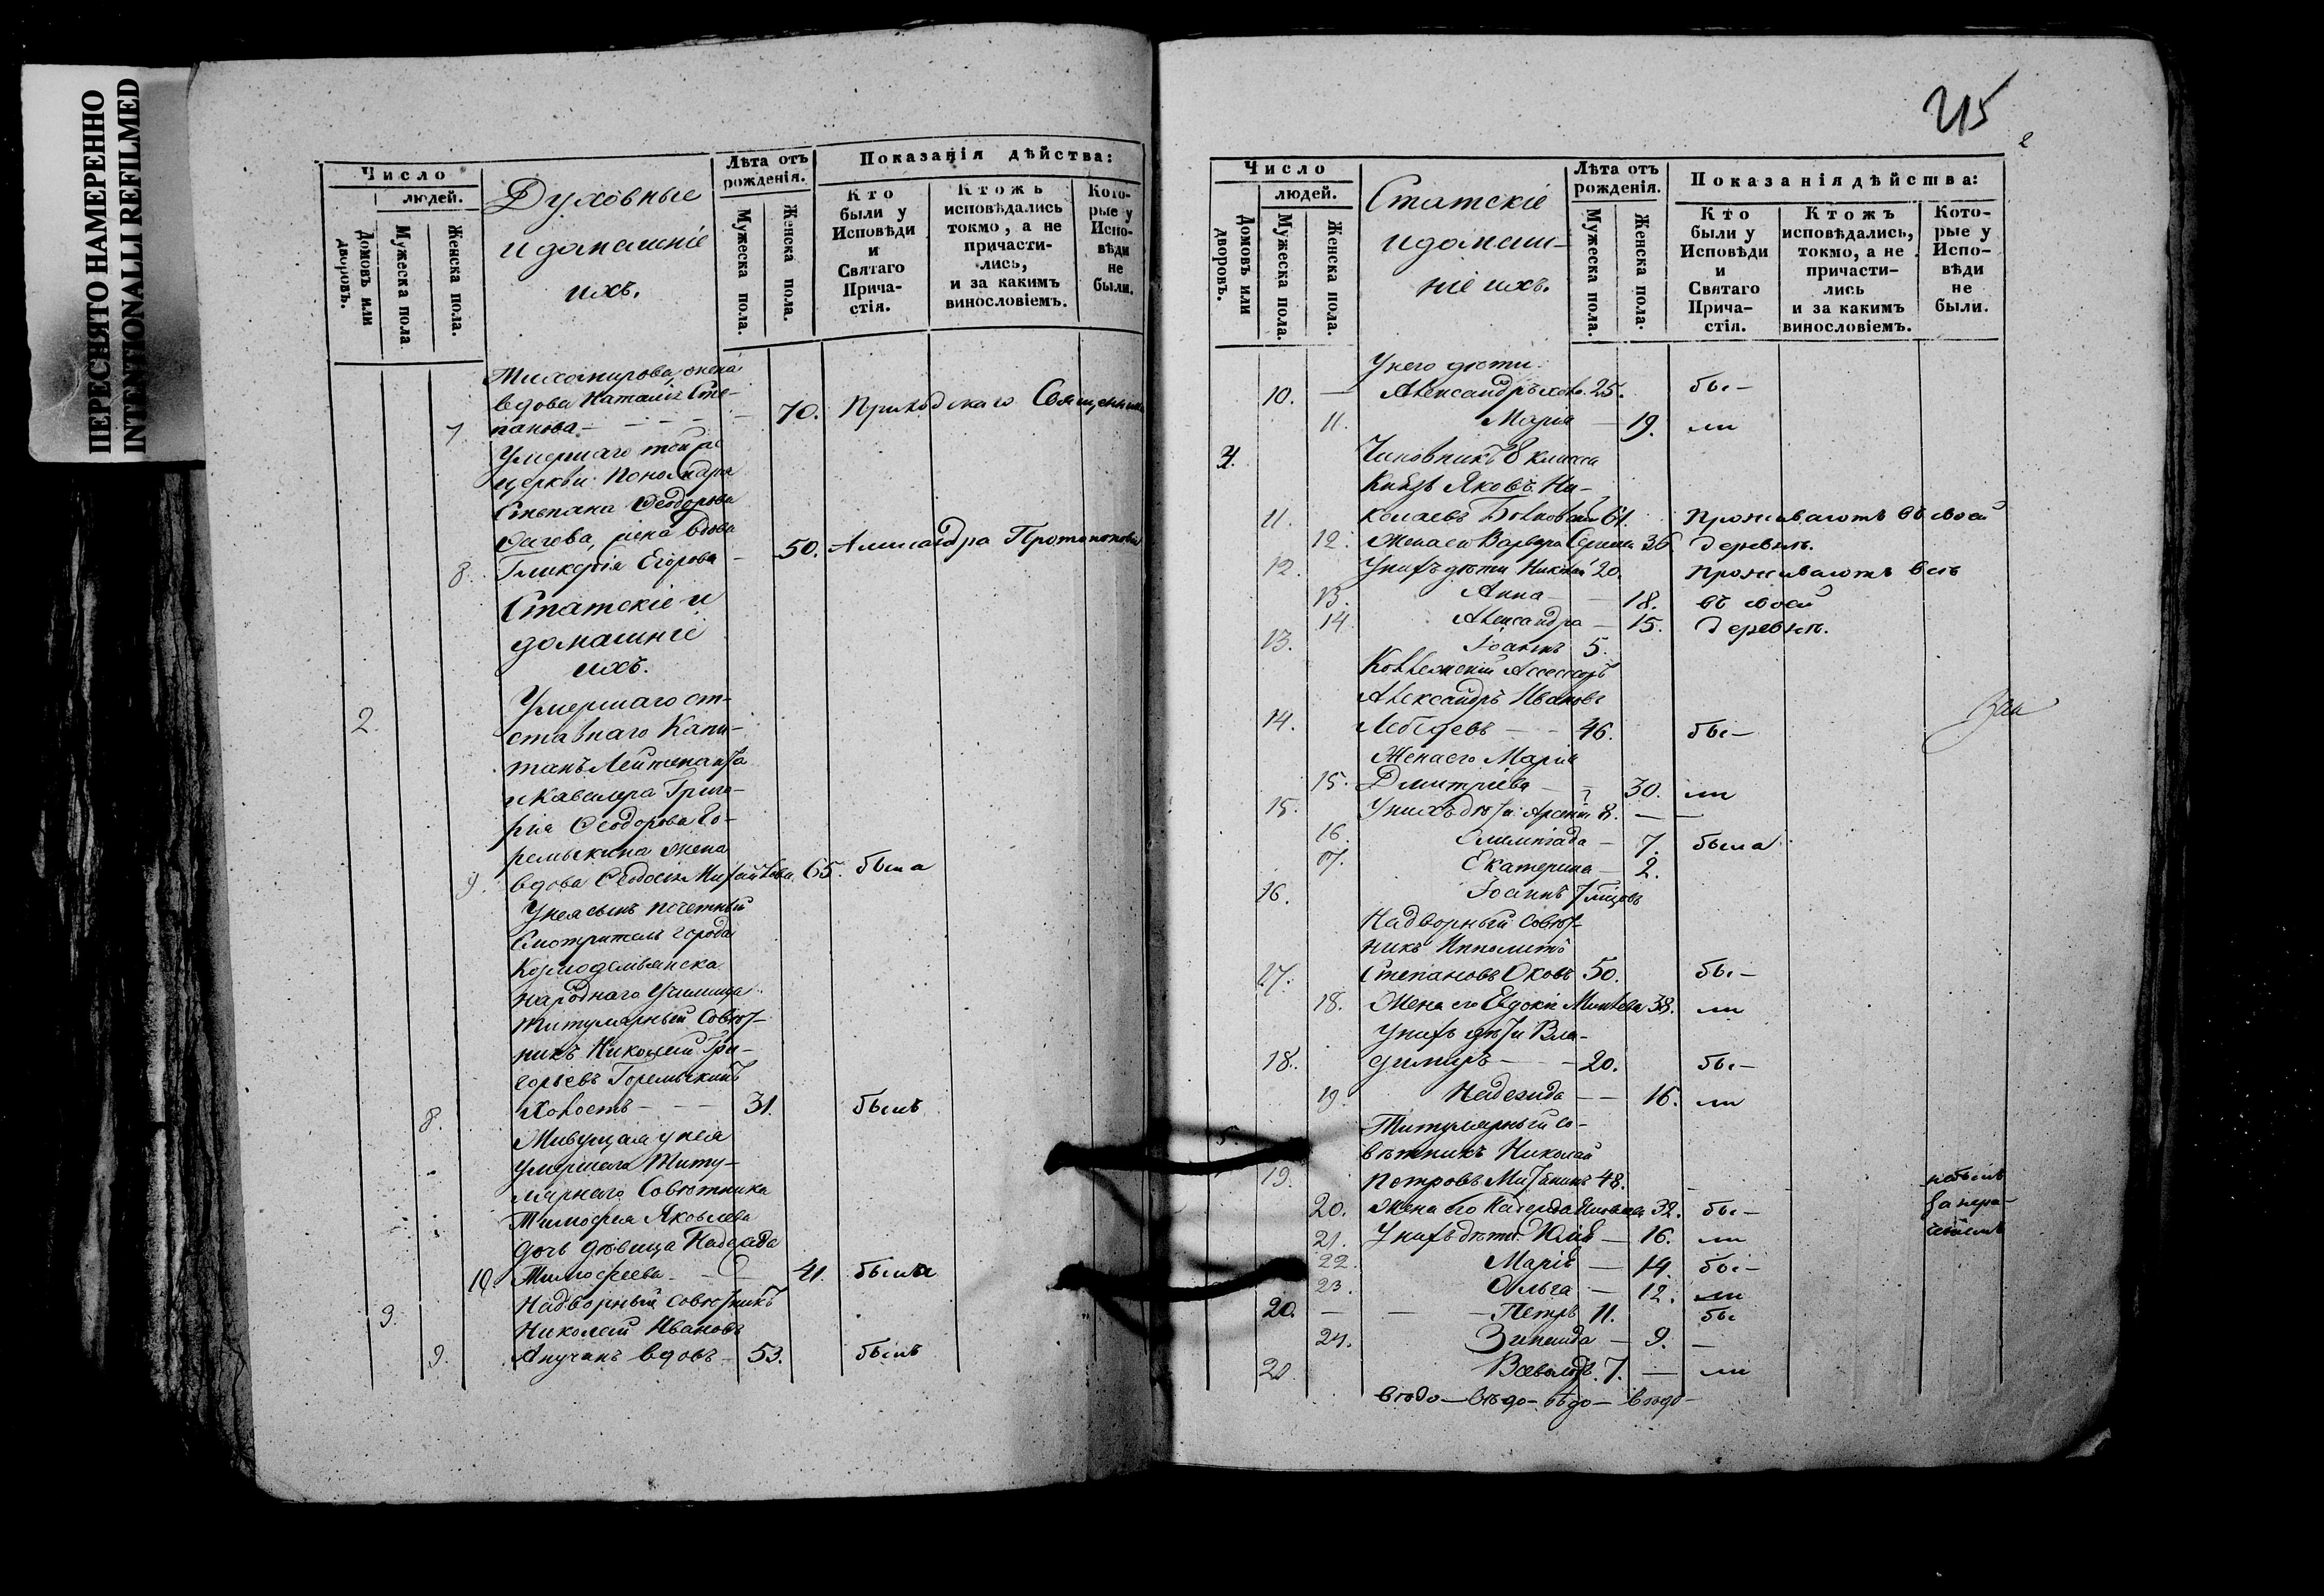 ПЕРЕСНЯТО НАМЕРЕННО
INTENTIONALLI REFILMED
Число
людей.
Домовъ или дворовъ.
Мужеска пола
Женска пола.
Духовные
и домашніе
ихъ.
Лѣта отъ рожденія.
Мужеска пола.
Женска пола.
Показанія дѣйства:
Кто были у Исповѣди и Святаго Причастія.
Ктожъ исповѣдались токмо, а не причастились, и за какимъ винословіемъ.
Которые у Исповѣди не были.
Тихомирова, жена
вдова Наталія Сте-
7 панова — — — 70. Приходскаго Священника
Умершаго той же
церкви Пономаря
Степана Феодорова
жена вдова
8. Гликерія Егорова — 50. Александра Протопопова
Статскіе и
домашніе
ихъ.
Умершаго от-
2. ставнаго Капи-
танъ Лейтенанта
и Кавалера Григо-
рія Феодорова Го-
ремыкина жена
9. вдова Феодосія Михайлова 65. была
У нея сынъ почетный
Смотритель города
Козмодемьянска
народнаго Училища
Титулярный Совѣт-
никъ Николай Гри-
горьевъ Горемыкинъ
8. Холостъ — — — 31. былъ
Живущая у нея
умершаго Титу-
лярнаго Совѣтника
Тимофея Яковлева
дочь дѣвица Надежда
10 Тимофеева — — 41. была
Надворный Совѣтникъ
3. Николай Ивановъ
9. Анучинъ вдовъ — 53. былъ
215
2
Число
людей.
Домовъ или дворовъ.
Мужеска пола.
Женска пола.
Статскіе
и домаш-
ніе ихъ.
Лѣта отъ рожденія.
Мужеска пола.
Женска пола.
Показанія дѣйства:
Кто были у Исповѣди и Святаго Причастія.
Ктожъ исповѣдались, токмо, а не причастились и за какимъ винословіемъ.
Которые у Исповѣди не были.
У него дѣти
10. — Александръ холо. 25. бы-
11. Марія — 19. ли
4. Чиновникъ 8 класса
Князь Яковъ Ни-
11. колаевъ 61. Проживаютъ въ своей
12. Жена его Варвара Сергеева 36. деревнѣ.
12. У нихъ дѣти Николай 20. Проживаютъ всѣ
13. Анна — 18. въ своей
14. Александра — 15. деревнѣ.
13. Іоаннъ 5.
Коллежскій Ассессоръ
Александръ Ивановъ
14. Лебедевъ — — 46. бы-
Жена его Марія
15. Дмитріева — 30. ли
15. У нихъ дѣти: Арсеній 8. — —
16. Олимпіада — 7. была
17. Екатерина — 2.
16. Іоаннъ 7 мѣсцовъ
Надворный Совѣт-
никъ Ипполитъ
17. Степановъ 50. бы-
18. Жена его Евдокія 38. ли
У нихъ дѣти Вла-
18. диміръ — — 20. бы-
19. Надежда — — 16. ли
5. Титулярный Со-
вѣтникъ Николай
19. Петровъ 48. не былъ
20. Жена его Надежда 32. бы- за нера-
21. У нихъ дѣти: Юлія — 16. ли дѣніемъ
22. Марія — 14. бы-
23. Ольга — 12. ли
20. — — — Петръ 11. бы
24. Зинаида — 9. —
21 Всеволодъ 7. — ли